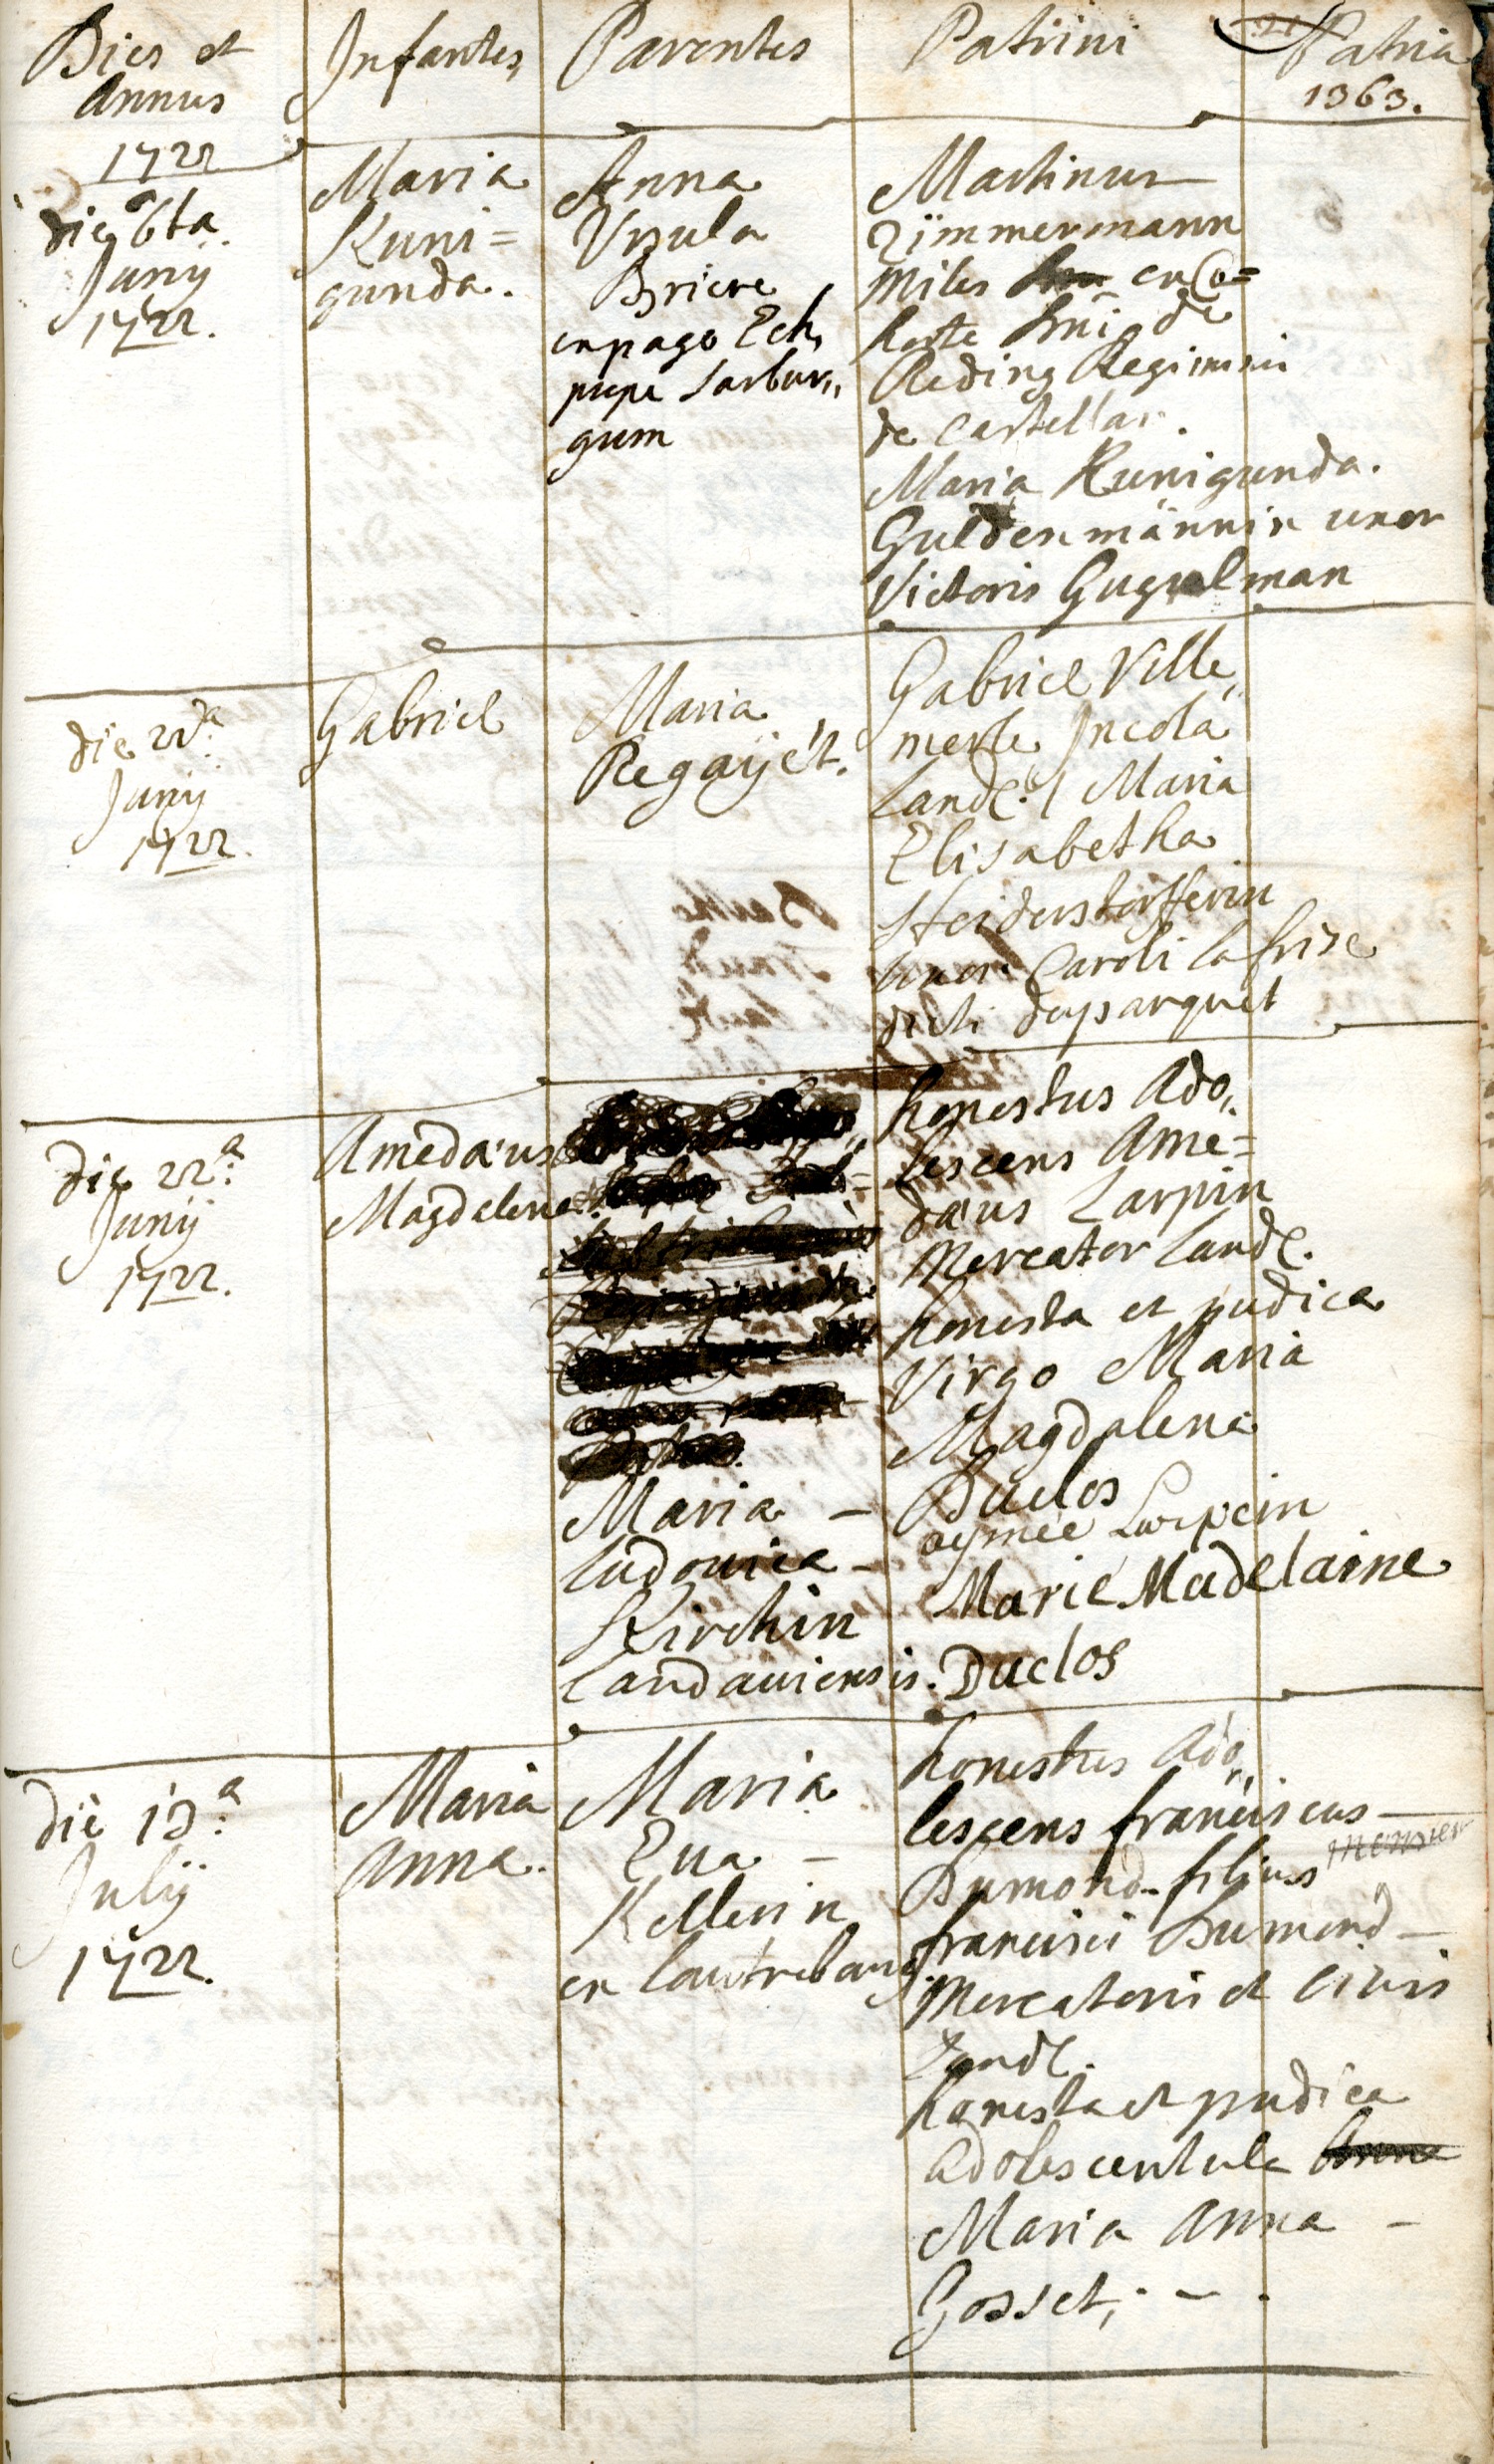 Dies et
Annus
1722
Infantes
Parentes
Patrini
Patria
1363.
die 6ta
Junij
1722.
Maria
Kuni=
gunda.
Anna
Ursula
Briere
ex pago Ech,
prope Sarbur,,
gum
Martinus
Zimmermann
miles ex Co=
horte Dni de
Reding Regiminis
de Castellar.
Maria Kunigunda.
Guldenmännin uxor
Victoris Gugelman
die 22da
Junij
1722.
Gabriel
Maria
Regayet.
Gabriel Ville,,
merle Incola
Land. / Maria
Elisabetha
Heiderstorfferin
uxor Caroli lafrise
dicti duparquet
die 22a:
Junij
1722.
Amedaeus
Magdalene.
Maria –
ludouica –
Kirchin
Landauiensis.
honestus Ado,,
lescens Ame=
daeus Larpin
Mercator Land.
honesta et pudica
Virgo Maria
Magdalena
Duclos
aymée Larpein
Marie Madelaine
Duclos
die 13a:
Julij
1722.
Maria
Anna.
Maria
Eua –
Kellerin
ex lautrebourg
honestus Ado,,
lescens franciscus –
Dumond filius
francisci Dumond –
Mercatoris et Ciuis
Land.
honesta et pudica
adolescentula Anna
Maria Anna –
Gosset; –